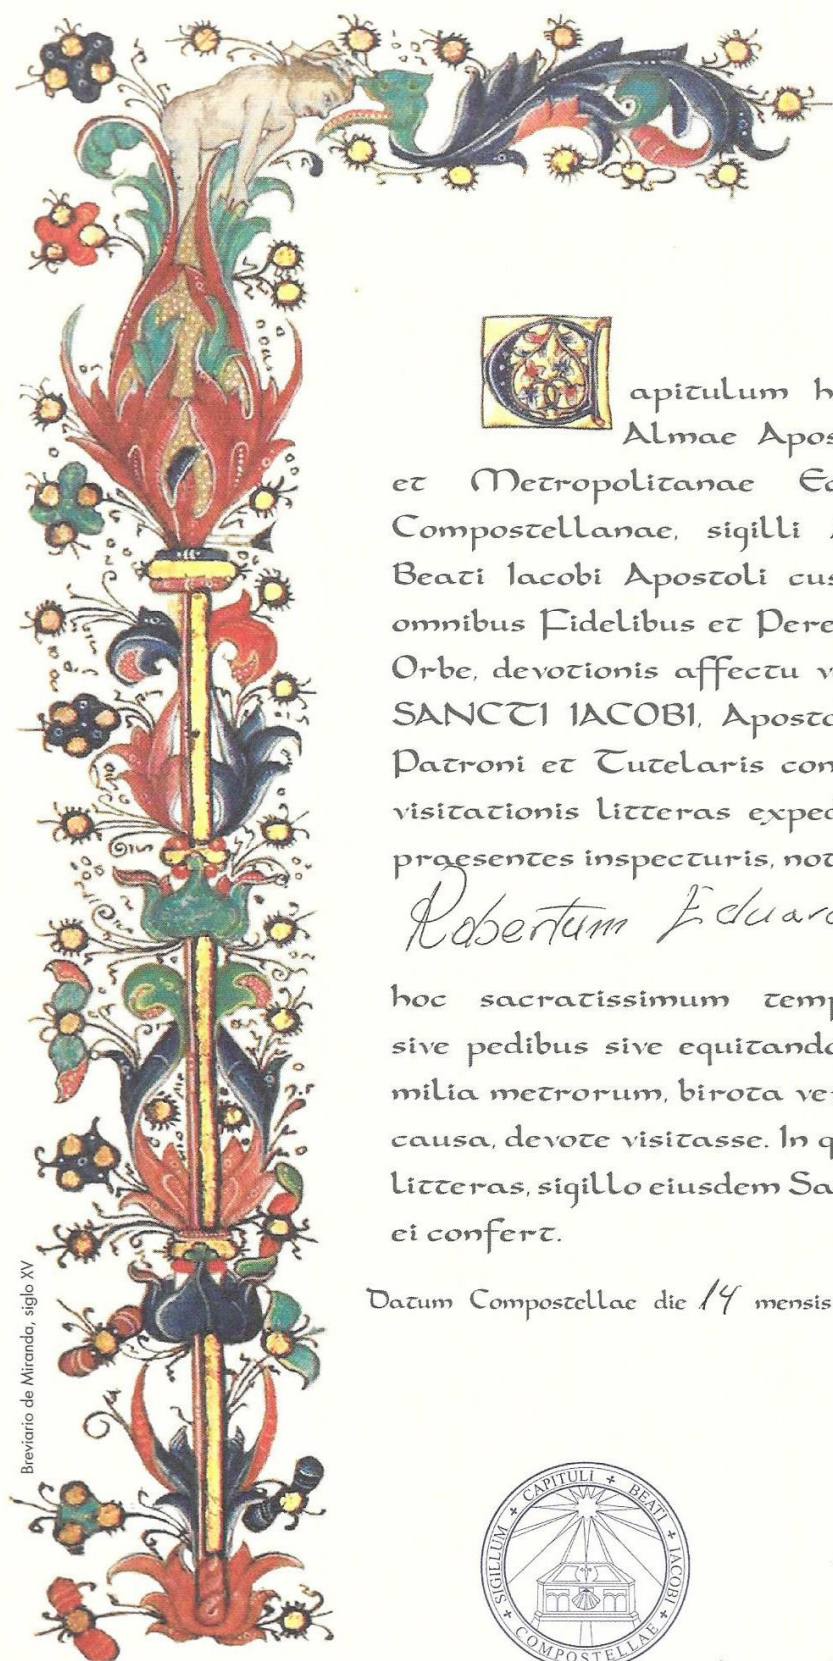 Capitulum h
Almae Apos
et Metropolitanae Ec
Compostellanae, sigilli
Beati Iacobi Apostoli cus
omnibus Fidelibus et Pere
Orbe, devotionis affectu v
SANCTI IACOBI, Aposto
Patroni et Tutelaris con
visitationis litteras exped
praesentes inspecturis, not
Robertum Eduard
hoc sacratissimum temp
sive pedibus sive equitando
milia metrorum, birota ver
causa, devote visitasse. In q
litteras, sigillo eiusdem Sa
ei confert.
Datum Compostellae die 14 mensis
Breviario de Miranda, siglo XV
SIGILLUM + CAPITULI + BEATI + IACOBI + COMPOSTELLAE +